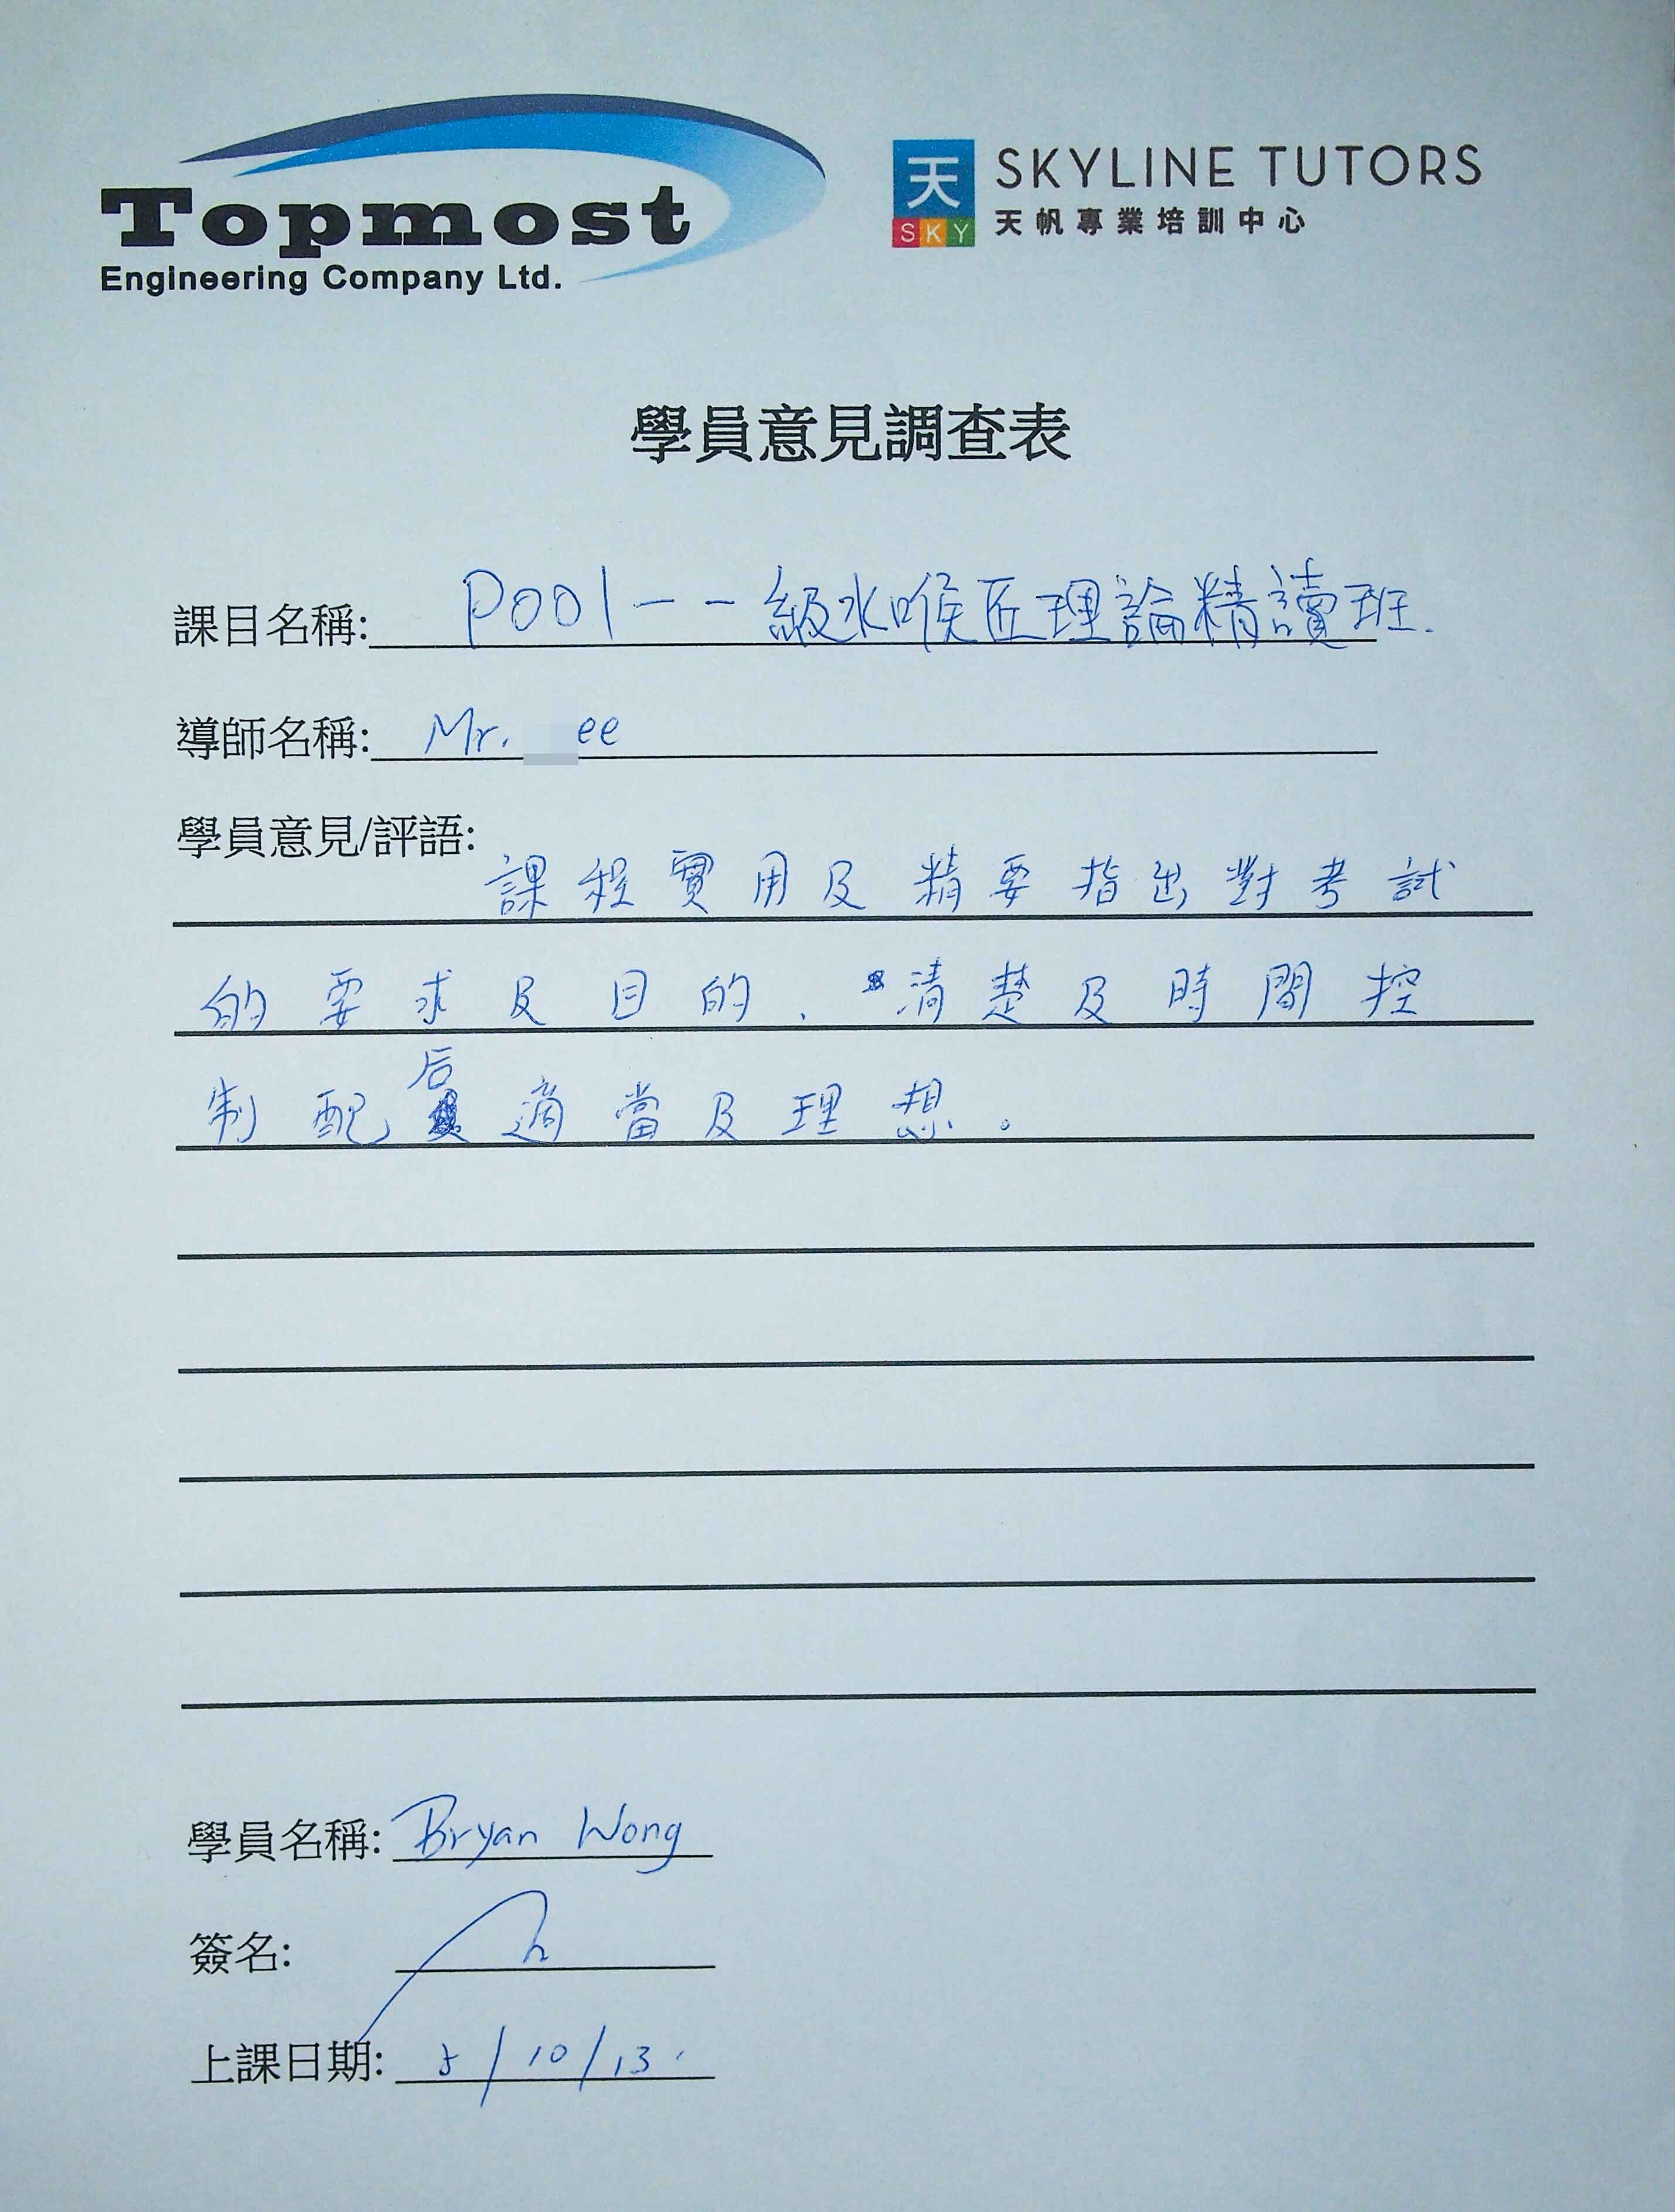 Topmost
Engineering Company Ltd.
天 SKY
SKYLINE TUTORS
天帆專業培訓中心
學員意見調查表
課目名稱: P001-一級水喉匠理論精讀班.
導師名稱: Mr. ee
學員意見/評語:
課程實用及精要指出對考試
的要求及目的. 清楚及時間控
制配后適當及理想。
學員名稱: Bryan Wong
簽名:
上課日期: 5/10/13